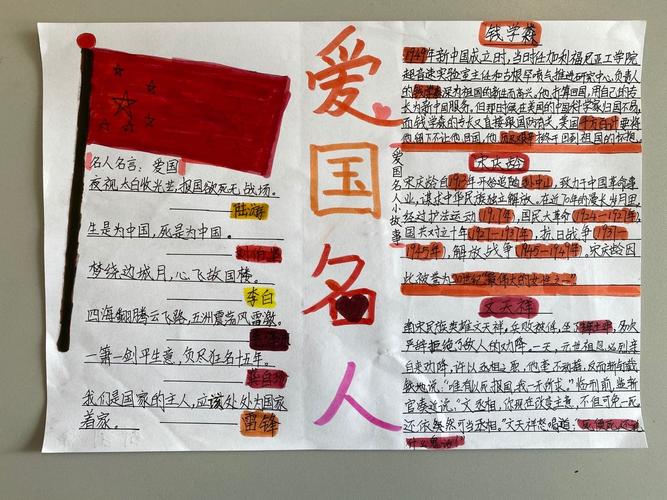 名人名言：爱国
夜视太白收光芒，报国欲死无战场。
陆游
生是为中国，死是为中国。
梦绕边城月，心飞故国楼。
李白
四海翻腾云飞路，五洲震荡风雷激。
一箫一剑平生意，负尽狂名十五年。
龚自珍
我们是国家的主人，应该处处为国家
着家。
雷锋
爱国名人
爱国名人小故事
钱学森
1949年新中国成立时，当时任加利福尼亚工学院
超音速实验室主任和古根罕喷气推进研究中心负责人
的钱学森深为祖国的新生而高兴。他打算回国，用自己的专
长为新中国服务，但那时候在美国的中国科学家归国不易，
而钱学森的专长又直接跟国防有关，美国千方百计要将
他留下不让他回国，他历尽艰辛终于回到祖国的怀抱。
宋庆龄
宋庆龄自1913年开始追随孙中山，致力于中国革命事
业，谋求中华民族独立解放，在近70年的漫长岁月里
经过护法运动（1917年），国民大革命（1924—1927年）
国共对立十年（1927—1937年），抗日战争（1931—
1945年），解放战争（1945—1949年）。宋庆龄因
此被誉为"20世纪"最伟大的女性之一"
文天祥
南宋民族英雄文天祥，兵败被俘，坐了三年土牢，多次
严辞拒绝了敌人的劝降。一天，元世祖忽必烈亲
自来劝降，许以丞相之职，他毫不动摇，反而斩钉截
铁地说："唯有以死报国，我一无所求。"临刑前，监斩
官凑近说："文丞相，你现在改变主意，不但可免一死
还依然可当丞相。"文天祥怒喝道："